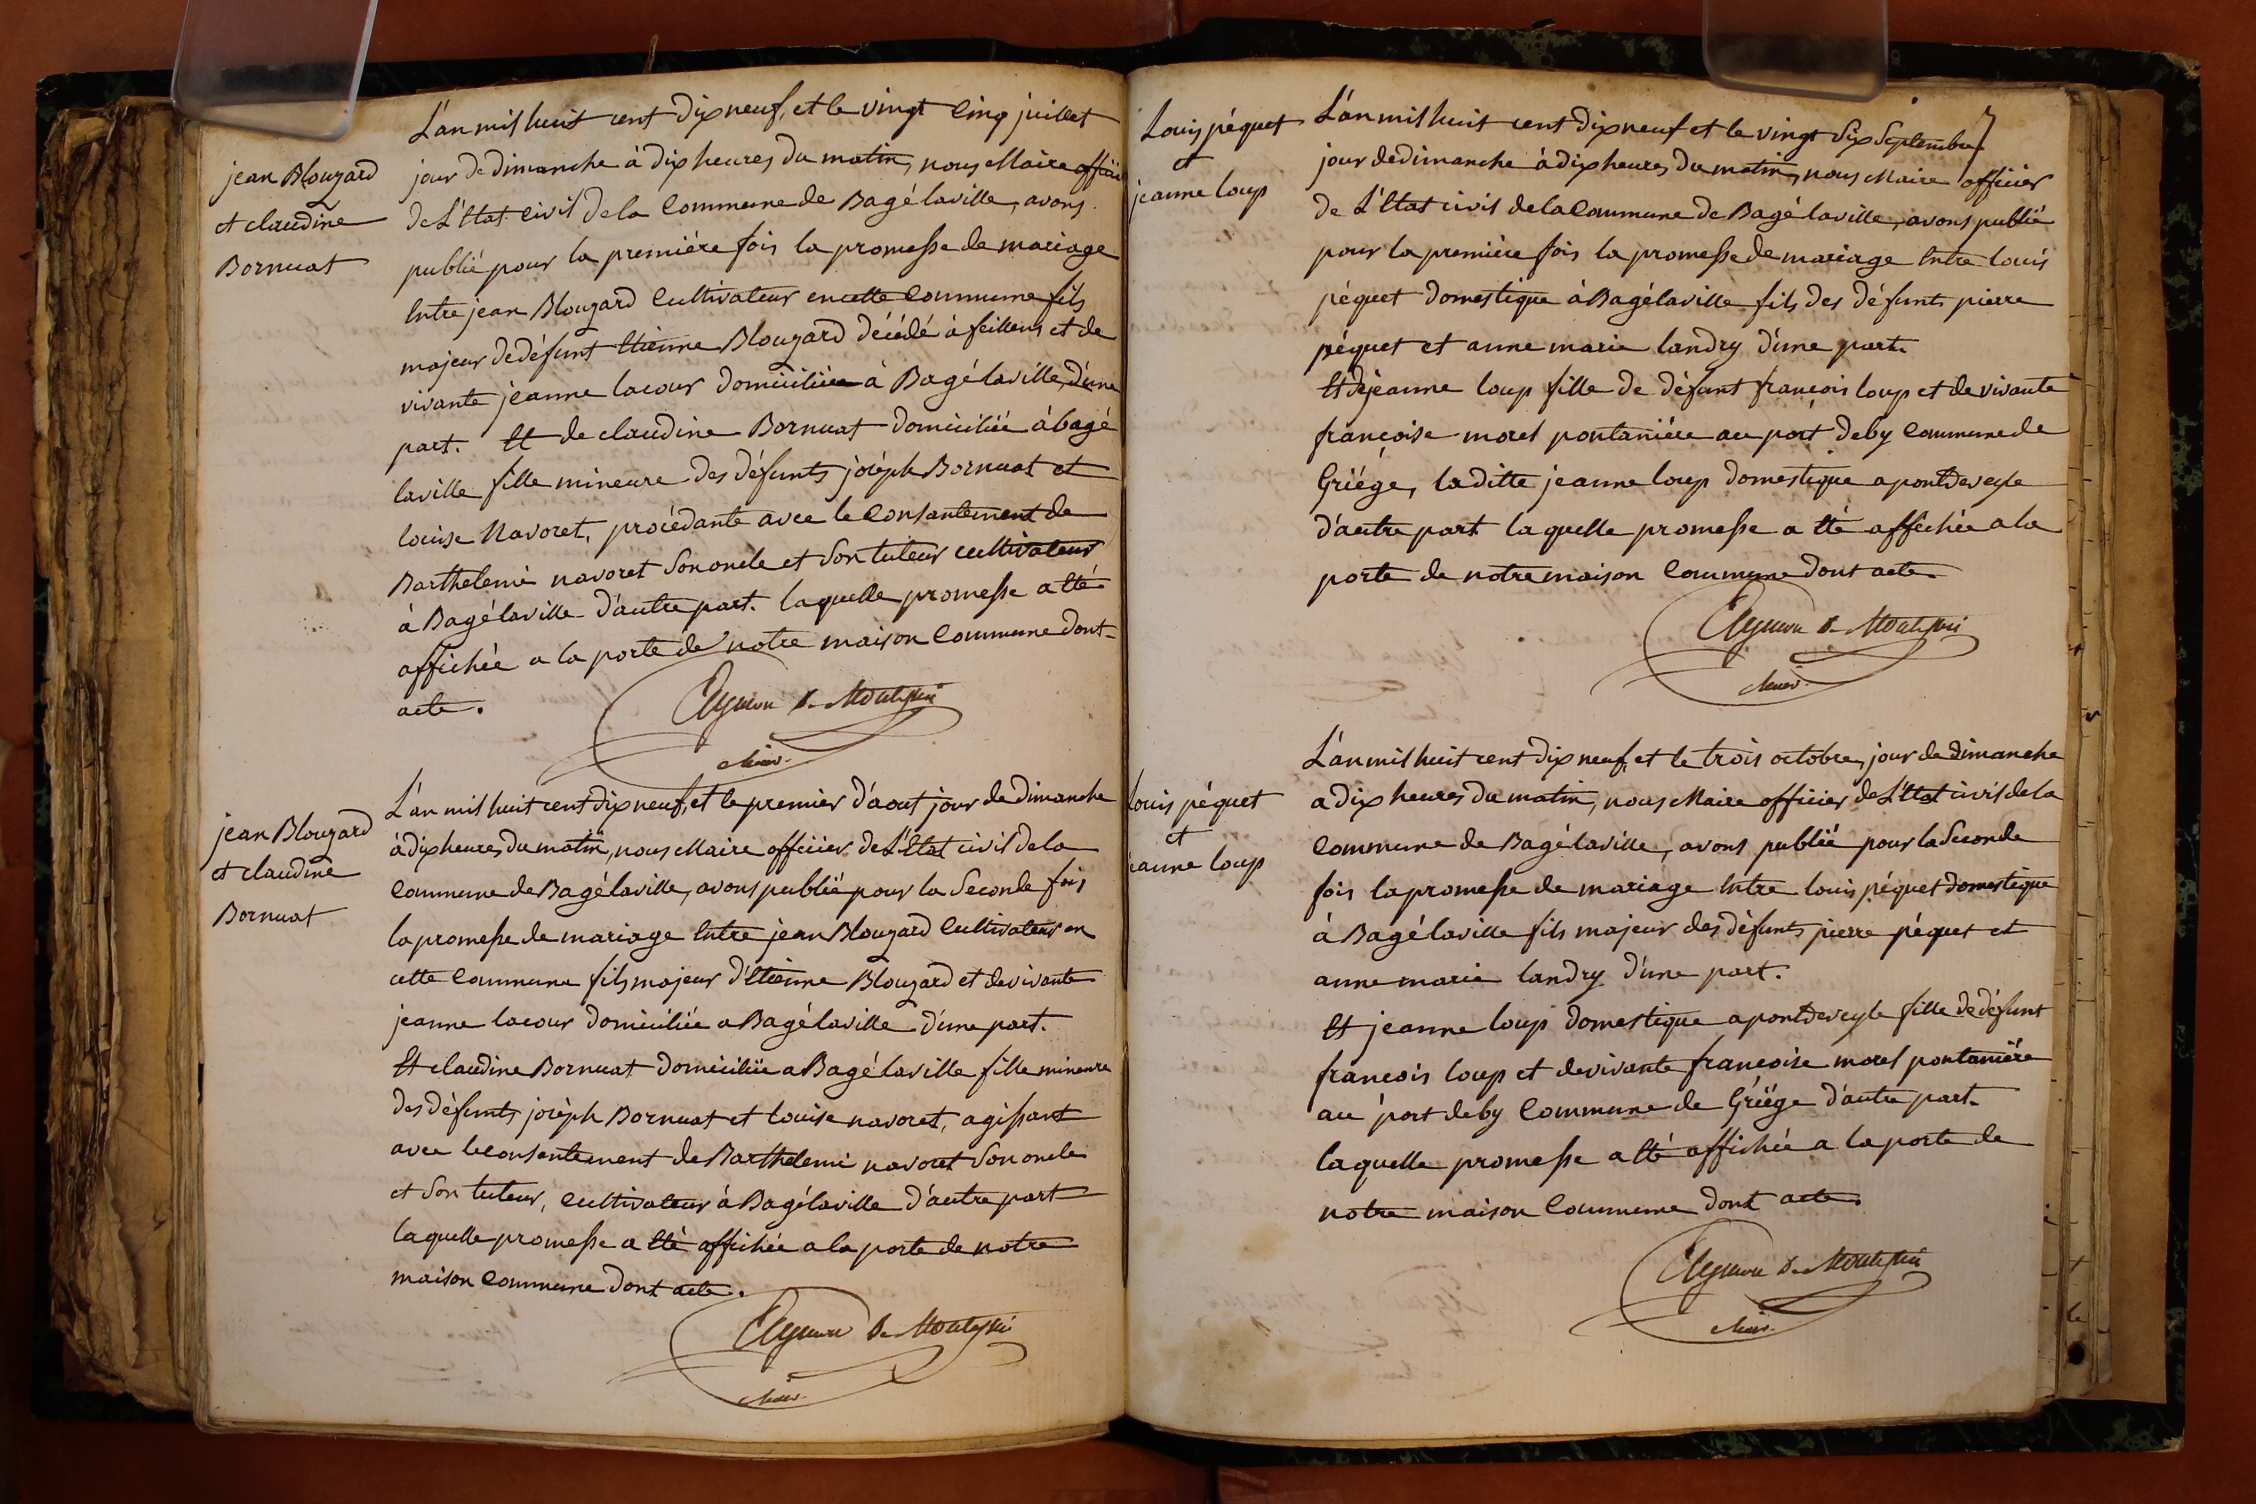 jean Blouzard
et claudine
Bornuat
L'an mil huit cent dix neuf, et le vingt cinq juillet
jour de dimanche à dix heures du matin, nous Maire officier
de L'Etat civil de la Commune de Bagé laville, avons
publié pour la première fois la promesse de mariage
Entre jean Blouzard Cultivateur en cette Commune fils
majeur de défunt Etienne Blouzard décédé à feillens et de
vivante jeanne lacour domiciliée à Bagé laville, d'une
part. Et de claudine Bornuat domiciliée à bagé
laville fille mineure des défunts joseph Bornuat et
louise Navoret, procédante avec le Consantement de
Barthelemi navoret Son oncle et Son tuteur cultivateur
à Bagé laville d'autre part. laquelle promesse a été
affichée a la porte de notre maison Commune dont
acte.
Maire
jean Blouzard
et claudine
Bornuat
L'an mil huit cent dix neuf, et le premier d'aout jour de dimanche
à dix heures du matin, nous Maire officier de L'Etat civil de la
Commune de Bagé laville, avons publié pour la Seconde fois
la promesse de mariage Entre jean Blouzard Cultivateur en
cette Commune fils majeur d'Etienne Blouzard et de vivante
jeanne lacour domiciliée a Bagé laville d'une part.
Et claudine Bornuat domiciliée a Bagé laville fille mineure
des défunts joseph Bornuat et louise navoret, agissant
avec le consentement de Barthelemi navoret Son oncle
et Son tuteur, Cultivateur à Bagé laville d'autre part
laquelle promesse a été affichée a la porte de notre
maison Commune dont acte.
Maire
7
Louis péquet
et
jeanne loup
L'an mil huit cent dix neuf et le vingt Six Septembre
jour de dimanche à dix heures du matin, nous Maire officier
de L'Etat civil de la Commune de Bagé laville, avons publié
pour la première fois la promesse de mariage Entre louis
péquet domestique à Bagé laville fils des défunts pierre
péquet et anne marie landry d'une part.
Et de jeanne loup fille de défunt françois loup et de vivante
françoise morel pontanière au port deby Commune de
Griége, la ditte jeanne loup domestique a pontdeveyle
d'autre part laquelle promesse a été affichée a la
porte de notre maison Commune dont acte.
Maire
louis péquet
et
jeanne loup
L'an mil huit cent dix neuf, et le trois octobre, jour de dimanche
a dix heures du matin, nous Maire officier de L'Etat civil de la
Commune de Bagé laville, avons publié pour la Seconde
fois la promesse de mariage Entre louis péquet domestique
à Bagé laville fils majeur des défunts pierre péquet et
anne marie landry d'une part.
Et jeanne loup domestique a pontdeveyle fille de défunt
françois loup et de vivante françoise morel pontanière
au port deby Commune de Griége d'autre part.
laquelle promesse a été affichée a la porte de
notre maison Commune dont acte.
Maire